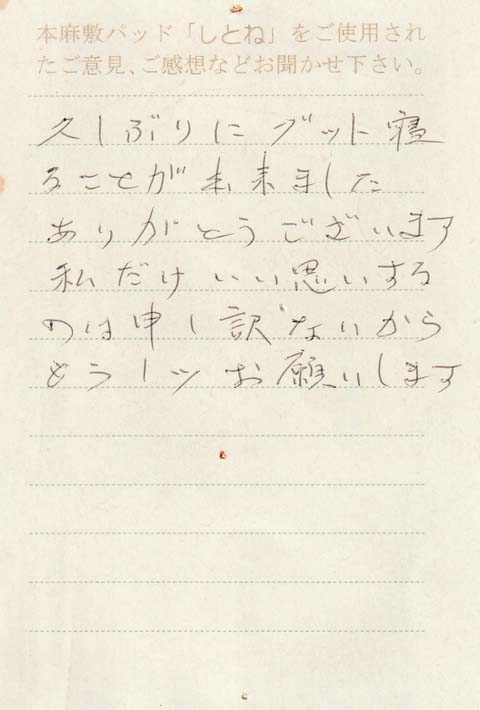 本麻敷パッド「しとね」をご使用され
たご意見、ご感想などお聞かせ下さい。
久しぶりにグット寝
ることが出来ました
ありがとうございます
私だけいい思いする
のは申し訳ないから
もう一ツお願いします